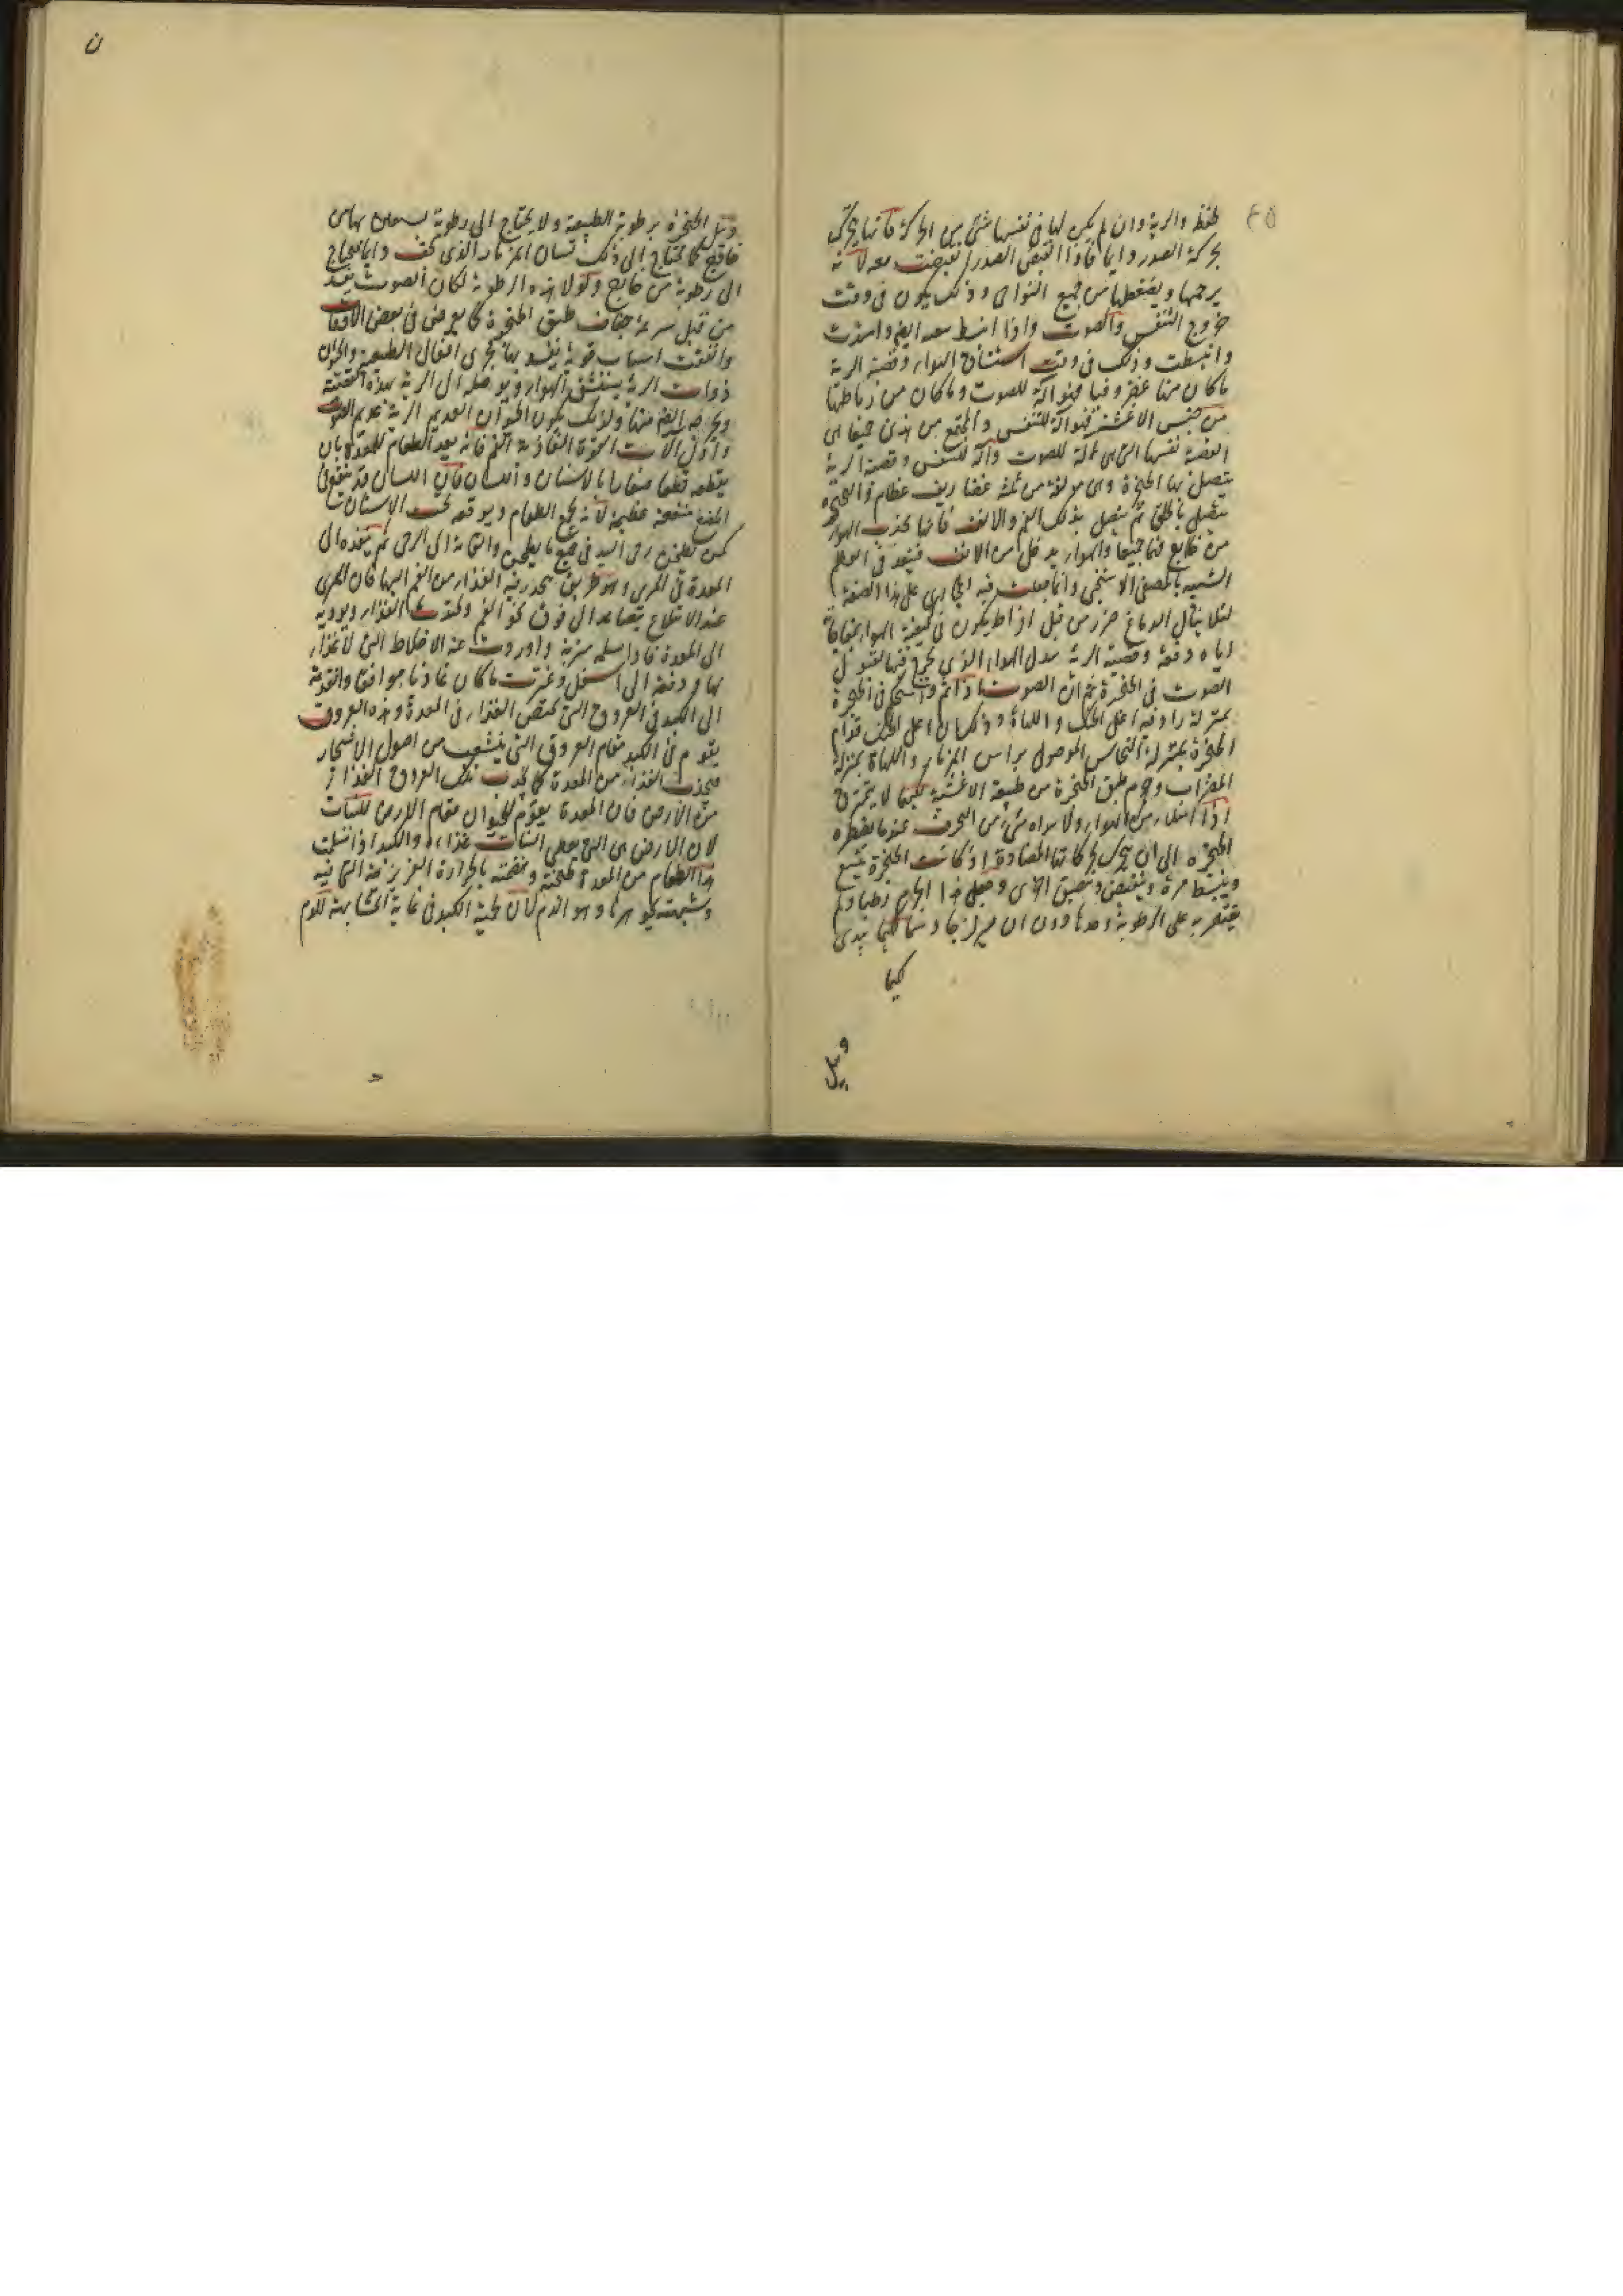 ٤٥
فقط والرية وان لم يكن لها فى نفسها شئ من الحركة فانها تتحرك
بحركة الصدر دايما فاذا انقبض الصدر انقبضت معه لانه
يزحمها ويضغطها من جميع النواحى وذلك يكون فى وقت
خروج التنفس والصوت واذا انبسط
وانبسطت وذلك فى وقت استنشاق الهواء وقصبة الرية
ما كان منها غضروفيا فهو آلة للصوت وما كان من رباطها
من جنس الاغشية فهو آلة للتنفس والمجتمع من هذين جميعا اى
القصبة نفسها التى هى آلة للصوت وآلة للتنفس وقصبة الرية
يتصل بها الحنجرة وهى مولفة من ثلثة غضاريف عظام والحنجرة
يتصل بالحلق ثم يتصل بذلك الفم والانف فانها تجذب الهواء
من خارج فيها جميعا والهواء يدخل من الانف فينفذ فى العظم
الشبيه بالمصفى الاسفنجى وانما جعلت فيه المجارى على هذا الصفة
لئلا ينال الدماغ ضرر من قبل افراط يكون فى كيفية الهواء
اياه دفعة وقصبة الرية الهواء الذى يخرج
الصوت فى الحنجرة ثم ان الصوت اذا تم فى الحنجرة
بمنزلة اعلى الحنك واللهاة وذلك ان اعلى الحنك قدام
الحنجرة بمنزلة النحاس الموصول براس المزمار واللهاة بمنزلة
المضراب وجرم طبق الحنجرة من طبيعة الاغشية لكيما لا يتخرق
اذا امتلا من الهواء ولا شئ من الحرف عندما يضطره
الحنجرة الى ان يتحرك بحركاتها المضادة اذ كانت الحنجرة يتسع
وينبسط مرة وينقبض ويضيق اخرى وجعل هذا الجرم رطبا ولم
يقتصر به على الرطوبة وحدها دون ان لزجا دسما لكيما يندى
كيما
ويبل
ن
ويبل الحنجرة برطوبة الطبيعة ولا يحتاج الى رطوبة بها من
خارج كما يحتاج الى ذلك لسان المزمار الذى يجف دايما فيحتاج
الى رطوبة من خارج ولولا هذه الرطوبة لكان الصوت يفسد
من قبل سرعة جفاف طبق الحنجرة كما يعرض فى بعض الاوقات
واتفقت اسباب قوية يفسد بها مجرى افعال الطبيعة والحيوان
ذوات الرية يستنشق الهواء ويوصله الى الرية بهذه القصبة
ويخرجه ايضا منها ولذلك يكون الحيوان العديم الرية عديم الصوت
واول آلات القوة الغاذية الفم فانه يعد الطعام للمعدة بان
يقطعه قطعا صغارا بالاسنان واللسان فان اللسان قد ينفع فى
المضغ منفعة عظيمة لانه يجمع الطعام ويوقعه تحت الاسنان
كمن يطحن رحى اليد فى جمع ما يطحن والقاءه الى الرحى ثم ينفذه الى
المعدة فى المرى وهو طريق ينحدر فيه الغذاء من الفم اليها فان المرى
عند الابتلاع يتصاعد الى فوق نحو الفم الغذاء ويوديه
الى المعدة عنه الاخلاط التى لا غذاء
بها ودفعه الى اسفل ما كان غاذيا موافقا وانفذته
الى الكبد فى العروق التى تمتص الغذاء فى المعدة وهذه العروق
يقوم فى الكبد مقام العروق التى يتشعب من اصول الاشجار
فيجذب الغذاء من المعدة كما يجذب تلك العروق الغذاء
من الارض فان المعدة يقوم للحيوان مقام الارض للنبات
لان الارض هى التى يعطى النبات غذاءه والكبد اذا تسلمت
هذا الطعام من المعدة طبخته ونضجته بالحرارة الغريزية التى فيه
وشبهته بجوهرها وهو الدم لان لحمية الكبد فى غاية المشابهة للدم